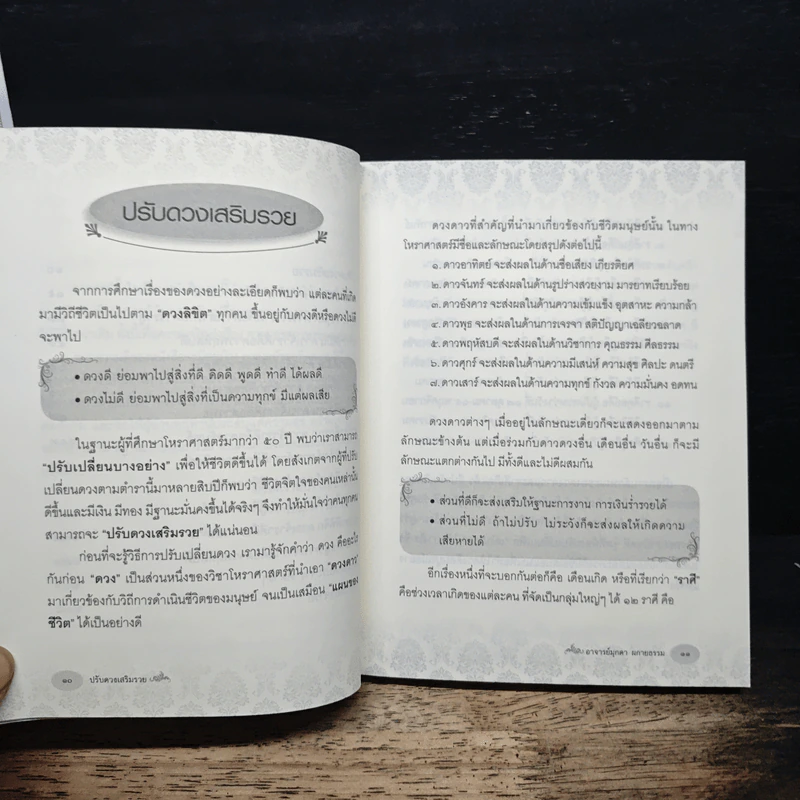 ปรับดวงเสริมรวย
จากการศึกษาเรื่องของดวงอย่างละเอียดก็พบว่า แต่ละคนที่เกิด
มามีวิถีชีวิตเป็นไปตาม “ดวงลิขิต” ทุกคน ขึ้นอยู่กับดวงดีหรือดวงไม่ดี
จะพาไป
• ดวงดี ย่อมพาไปสู่สิ่งที่ดี คิดดี พูดดี ทำดี ได้ผลดี
• ดวงไม่ดี ย่อมพาไปสู่สิ่งที่เป็นความทุกข์ มีแต่ผลเสีย
ในฐานะผู้ที่ศึกษาโหราศาสตร์มากว่า ๕๐ ปี พบว่าเราสามารถ
“ปรับเปลี่ยนบางอย่าง” เพื่อให้ชีวิตดีขึ้นได้ โดยสังเกตจากผู้ที่ปรับ
เปลี่ยนดวงตามตำรานี้มาหลายสิบปีก็พบว่า ชีวิตจิตใจของคนเหล่านั้น
ดีขึ้นและมีเงิน มีทอง มีฐานะมั่นคงขึ้นได้จริงๆ จึงทำให้มั่นใจว่าคนทุกคน
สามารถจะ “ปรับดวงเสริมรวย” ได้แน่นอน
ก่อนที่จะรู้วิธีการปรับเปลี่ยนดวง เรามารู้จักคำว่า ดวง คืออะไร
กันก่อน “ดวง” เป็นส่วนหนึ่งของวิชาโหราศาสตร์ที่นำเอา “ดวงดาว”
มาเกี่ยวข้องกับวิถีการดำเนินชีวิตของมนุษย์ จนเป็นเสมือน “แผนของ
ชีวิต” ได้เป็นอย่างดี
๑๐ ปรับดวงเสริมรวย
ดวงดาวที่สำคัญที่นำมาเกี่ยวข้องกับชีวิตมนุษย์นั้น ในทาง
โหราศาสตร์มีชื่อและลักษณะโดยสรุปดังต่อไปนี้
๑. ดาวอาทิตย์ จะส่งผลในด้านชื่อเสียง เกียรติยศ
๒. ดาวจันทร์ จะส่งผลในด้านรูปร่างสวยงาม มารยาทเรียบร้อย
๓. ดาวอังคาร จะส่งผลในด้านความเข้มแข็ง อุตสาหะ ความกล้า
๔. ดาวพุธ จะส่งผลในด้านการเจรจา สติปัญญาเฉลียวฉลาด
๕. ดาวพฤหัสบดี จะส่งผลในด้านวิชาการ คุณธรรม ศีลธรรม
๖. ดาวศุกร์ จะส่งผลในด้านความมีเสน่ห์ ความสุข ศิลปะ ดนตรี
๗. ดาวเสาร์ จะส่งผลในด้านความทุกข์ กังวล ความมั่นคง อดทน
ดวงดาวต่างๆ เมื่ออยู่ในลักษณะเดี่ยวก็จะแสดงออกมาตาม
ลักษณะข้างต้น แต่เมื่อร่วมกับดาวดวงอื่น เดือนอื่น วันอื่น ก็จะมี
ลักษณะแตกต่างกันไป มีทั้งดีและไม่ดีผสมกัน
• ส่วนที่ดีก็จะส่งเสริมให้ฐานะการงาน การเงินร่ำรวยได้
• ส่วนที่ไม่ดี ถ้าไม่ปรับ ไม่ระวังก็จะส่งผลให้เกิดความ
เสียหายได้
อีกเรื่องหนึ่งที่จะบอกกันต่อก็คือ เดือนเกิด หรือที่เรียกว่า “ราศี”
คือช่วงเวลาเกิดของแต่ละคน ที่จัดเป็นกลุ่มใหญ่ๆ ได้ ๑๒ ราศี คือ
อาจารย์มุกดา ผกายธรรม ๑๑